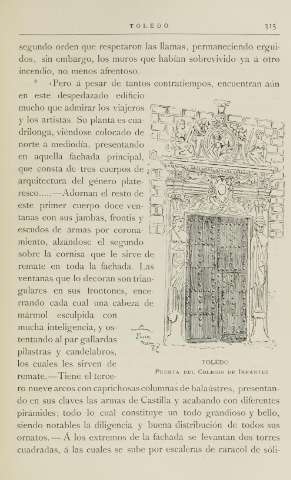 TOLEDO 315
segundo orden que respetaron las llamas, permaneciendo ergui-
dos, sin embargo, los muros que habían sobrevivido ya á otro
incendio, no menos afrentoso.
«Pero á pesar de tantos contratiempos, encuentran aún
en este despedazado edificio
mucho que admirar los viajeros
y los artistas. Su planta es cua-
drilonga, viéndose colocado de
norte á mediodía, presentando
en aquella fachada principal,
que consta de tres cuerpos de
arquitectura del género plate-
resco.....—Adornan el resto de
este primer cuerpo doce ven-
tanas con sus jambas, frontis y
escudos de armas por corona-
miento, alzándose el segundo
sobre la cornisa que le sirve de
remate en toda la fachada. Las
ventanas que lo decoran son trian-
gulares en sus frontones, ence-
rrando cada cual una cabeza de
mármol esculpida con
mucha inteligencia, y os-
tentando al par gallardas
pilastras y candelabros,
los cuales les sirven de
remate.—Tiene el terce-
TOLEDO
Puerta del Colegio de Infantes
ro nueve arcos con caprichosas columnas de balaústres, presentan-
do en sus claves las armas de Castilla y acabando con diferentes
pirámides; todo lo cual constituye un todo grandioso y bello,
siendo notables la diligencia y buena distribución de todos sus
ornatos.—Á los extremos de la fachada se levantan dos torres
cuadradas, á las cuales se sube por escaleras de caracol de sóli-